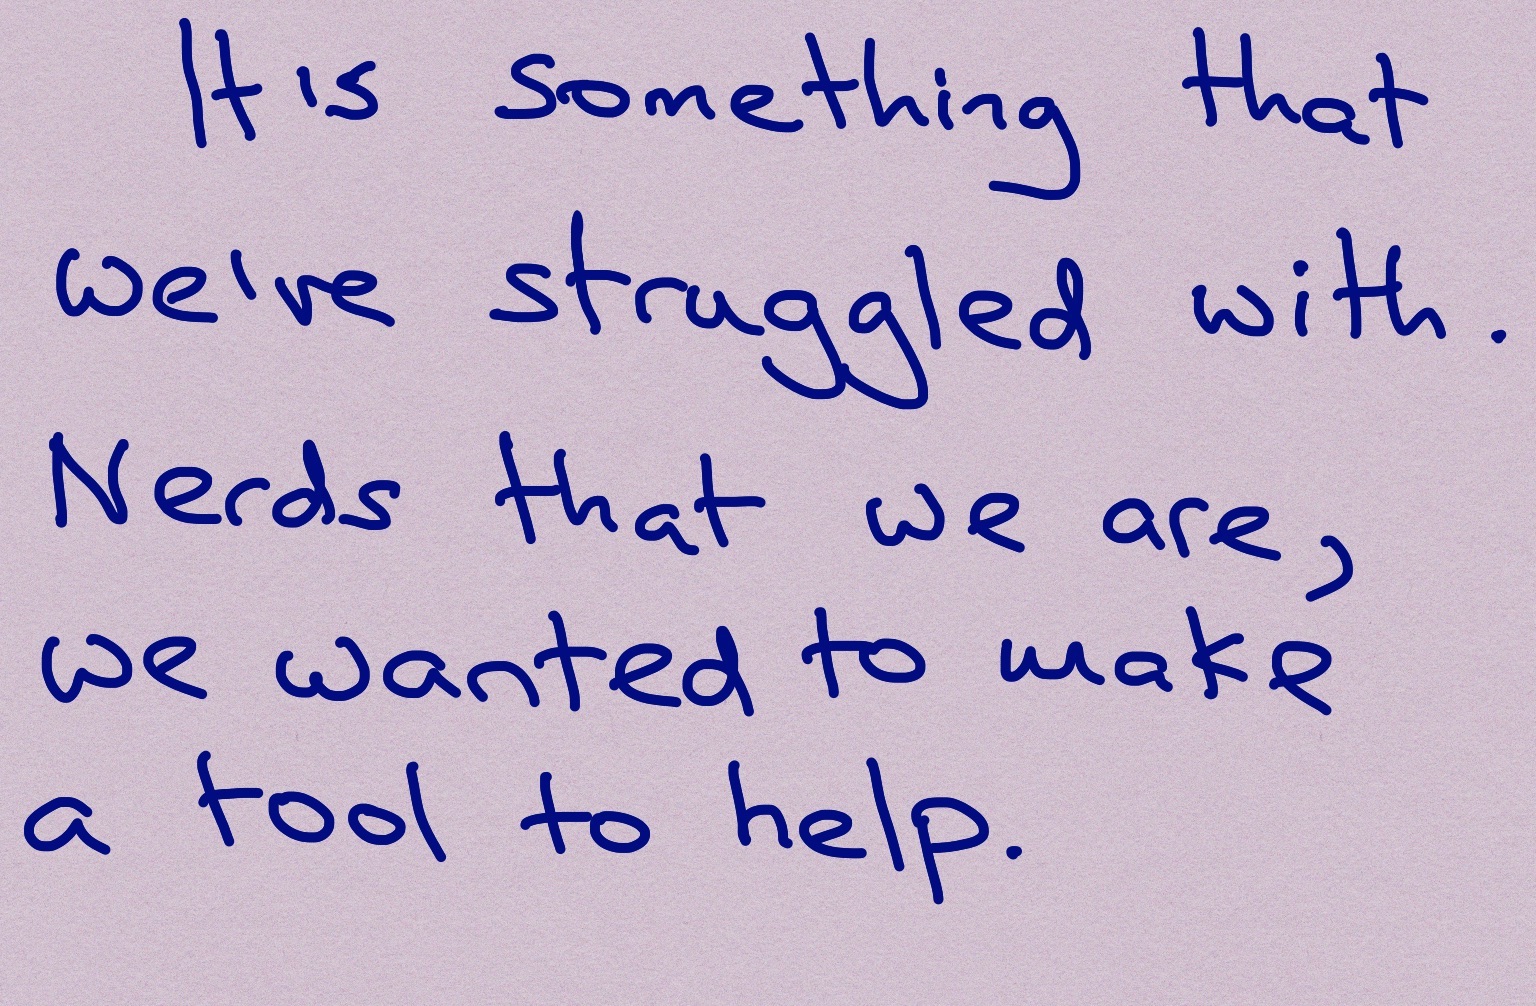 It's something that
we've struggled with.
Nerds that we are,
we wanted to make
a tool to help.